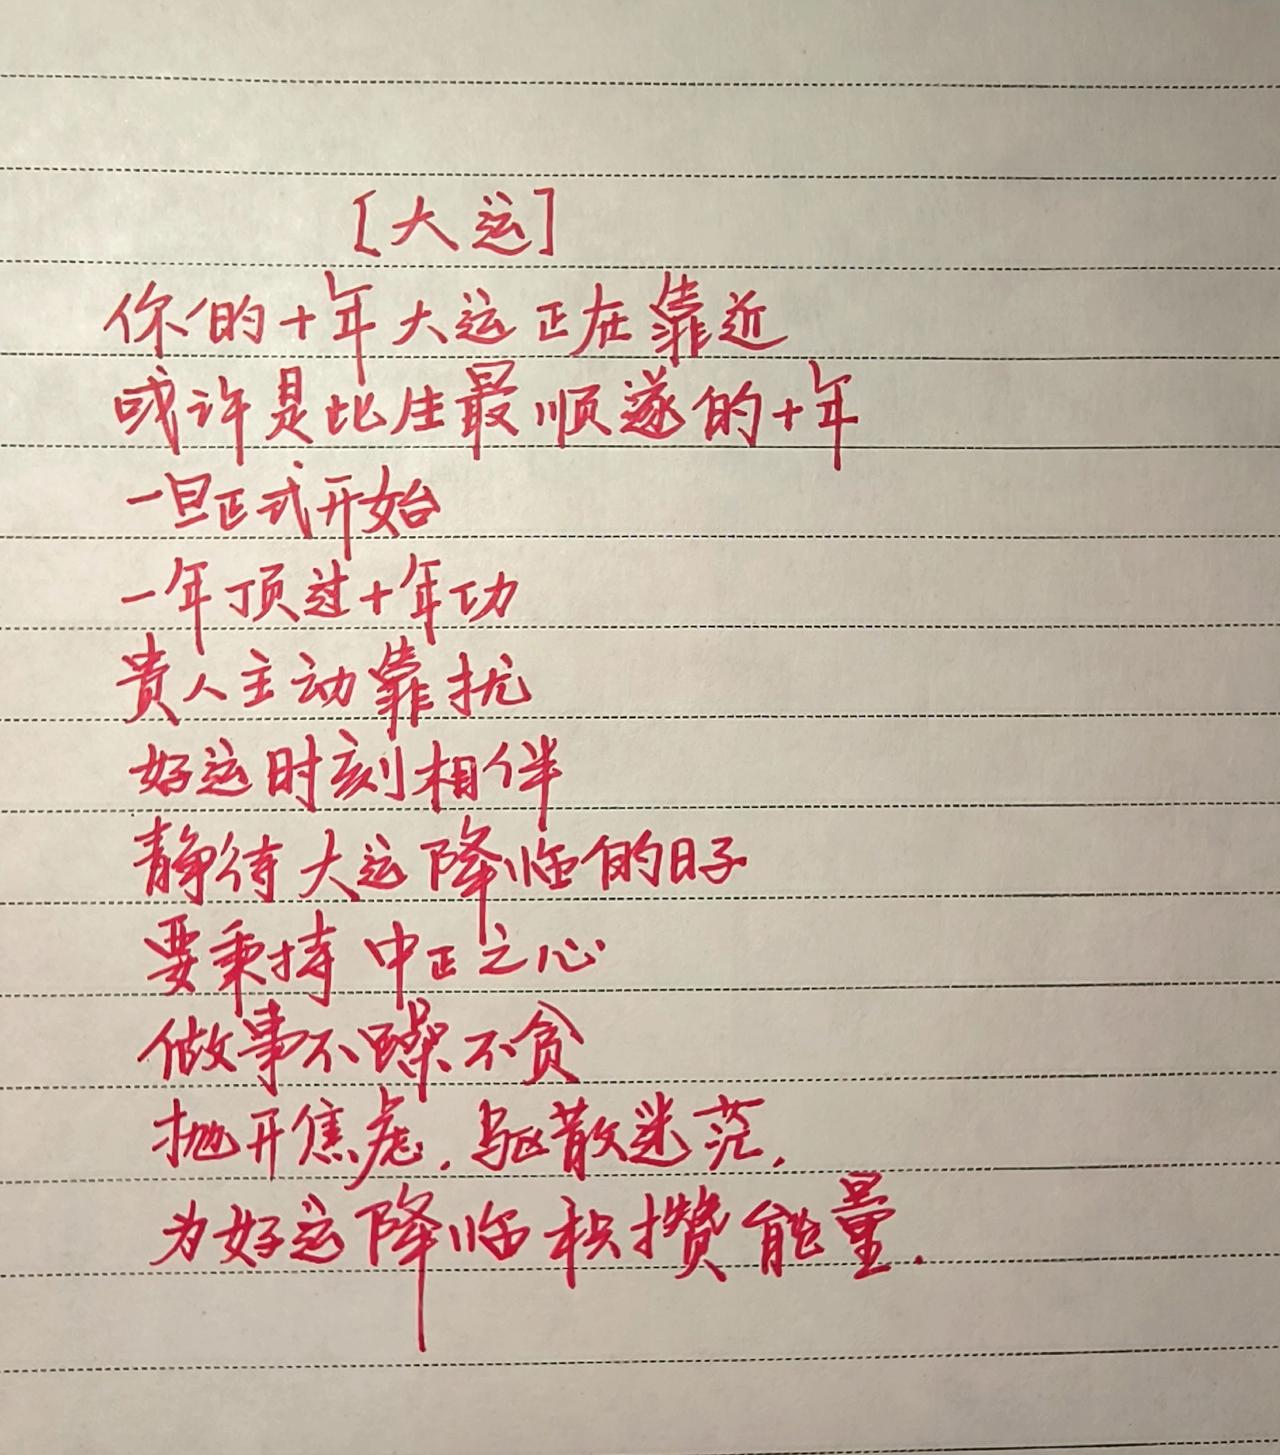 [大运]
你的十年大运正在靠近
或许是此生最顺遂的十年
一旦正式开始
一年顶过十年功
贵人主动靠扰
好运时刻相伴
静待大运降临的日子
要秉持中正之心
做事不躁不贪
抛开焦虑,驱散迷茫,
为好运降临积攒能量.